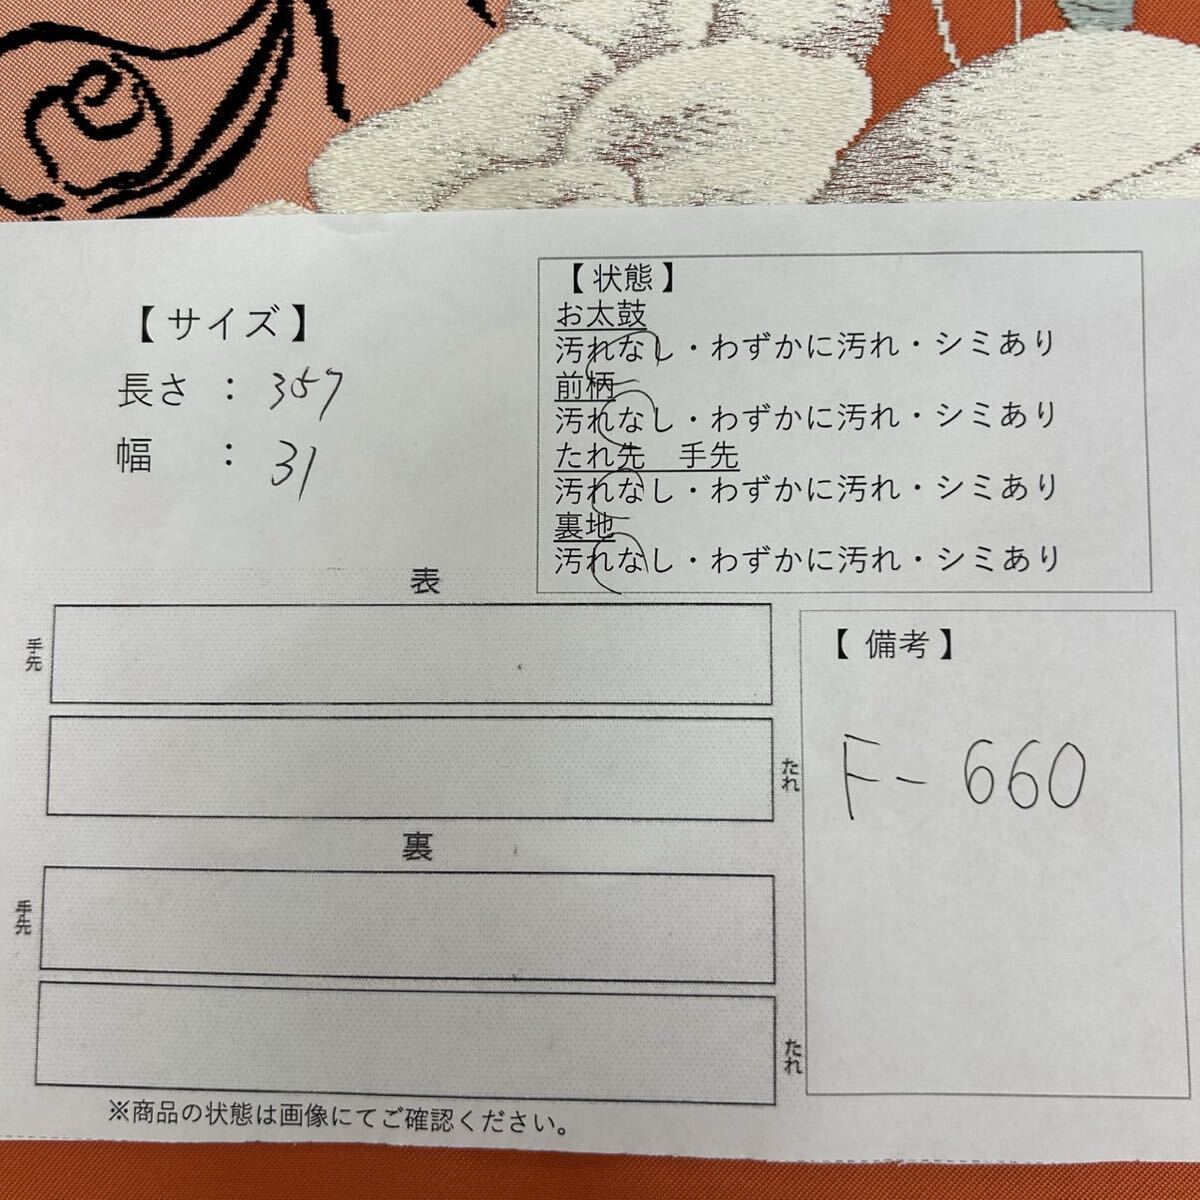 【 サイズ 】
長さ : 357
幅 : 31
【 状態 】
お太鼓
汚れなし・わずかに汚れ・シミあり
前柄
汚れなし・わずかに汚れ・シミあり
たれ先 手先
汚れなし・わずかに汚れ・シミあり
裏地
汚れなし・わずかに汚れ・シミあり
表
手先
たれ
裏
手先
たれ
【 備考 】
F-660
※商品の状態は画像にてご確認ください。